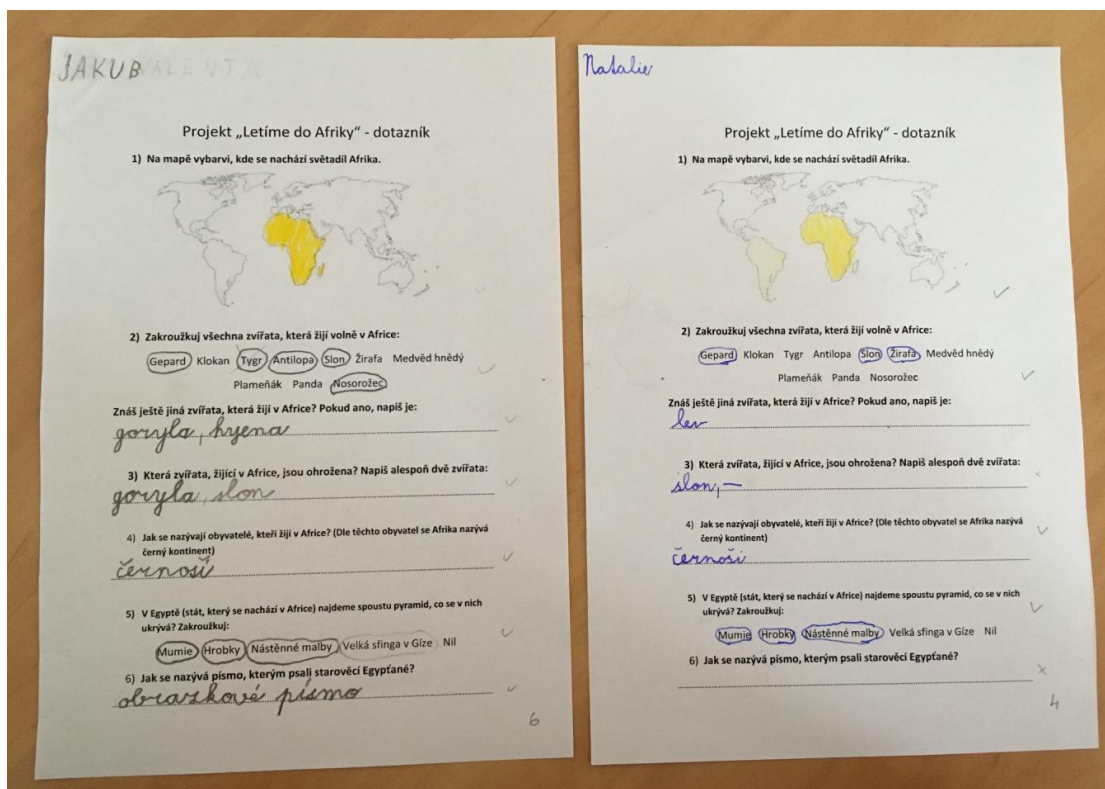 JAKUB VALENTA
Projekt „Letíme do Afriky“ - dotazník
1) Na mapě vybarvi, kde se nachází světadíl Afrika.
2) Zakroužkuj všechna zvířata, která žijí volně v Africe:
Gepard Klokan Tygr Antilopa Slon Žirafa Medvěd hnědý
Plameňák Panda Nosorožec
Znáš ještě jiná zvířata, která žijí v Africe? Pokud ano, napiš je:
goryla, hyena
3) Která zvířata, žijící v Africe, jsou ohrožena? Napiš alespoň dvě zvířata:
goryla, slon
4) Jak se nazývají obyvatelé, kteří žijí v Africe? (Dle těchto obyvatel se Afrika nazývá
černý kontinent)
černoší
5) V Egyptě (stát, který se nachází v Africe) najdeme spoustu pyramid, co se v nich
ukrývá? Zakroužkuj:
Mumie Hrobky Nástěnné malby Velká sfinga v Gíze Nil
6) Jak se nazývá písmo, kterým psali starověcí Egypťané?
obrazkové písmo
6
Natalie
Projekt „Letíme do Afriky“ - dotazník
1) Na mapě vybarvi, kde se nachází světadíl Afrika.
2) Zakroužkuj všechna zvířata, která žijí volně v Africe:
Gepard Klokan Tygr Antilopa Slon Žirafa Medvěd hnědý
Plameňák Panda Nosorožec
Znáš ještě jiná zvířata, která žijí v Africe? Pokud ano, napiš je:
lev
3) Která zvířata, žijící v Africe, jsou ohrožena? Napiš alespoň dvě zvířata:
slon, —
4) Jak se nazývají obyvatelé, kteří žijí v Africe? (Dle těchto obyvatel se Afrika nazývá
černý kontinent)
černoši
5) V Egyptě (stát, který se nachází v Africe) najdeme spoustu pyramid, co se v nich
ukrývá? Zakroužkuj:
Mumie Hrobky Nástěnné malby Velká sfinga v Gíze Nil
6) Jak se nazývá písmo, kterým psali starověcí Egypťané?
4